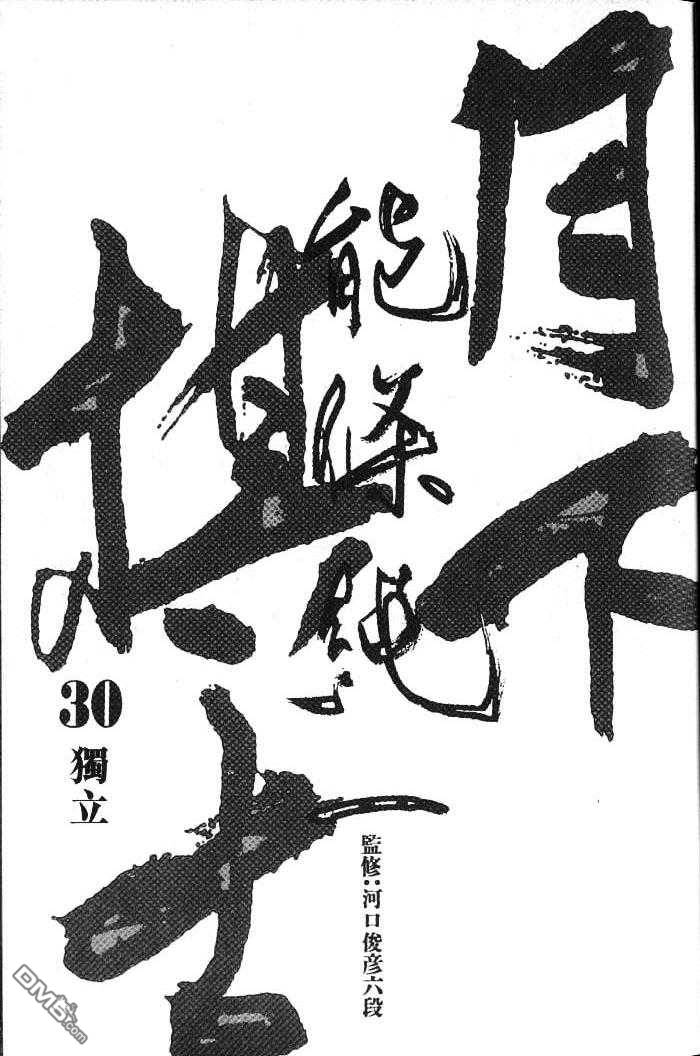 月下
棋士
能條純一
30
獨立
監修:河口俊彦六段
DM5